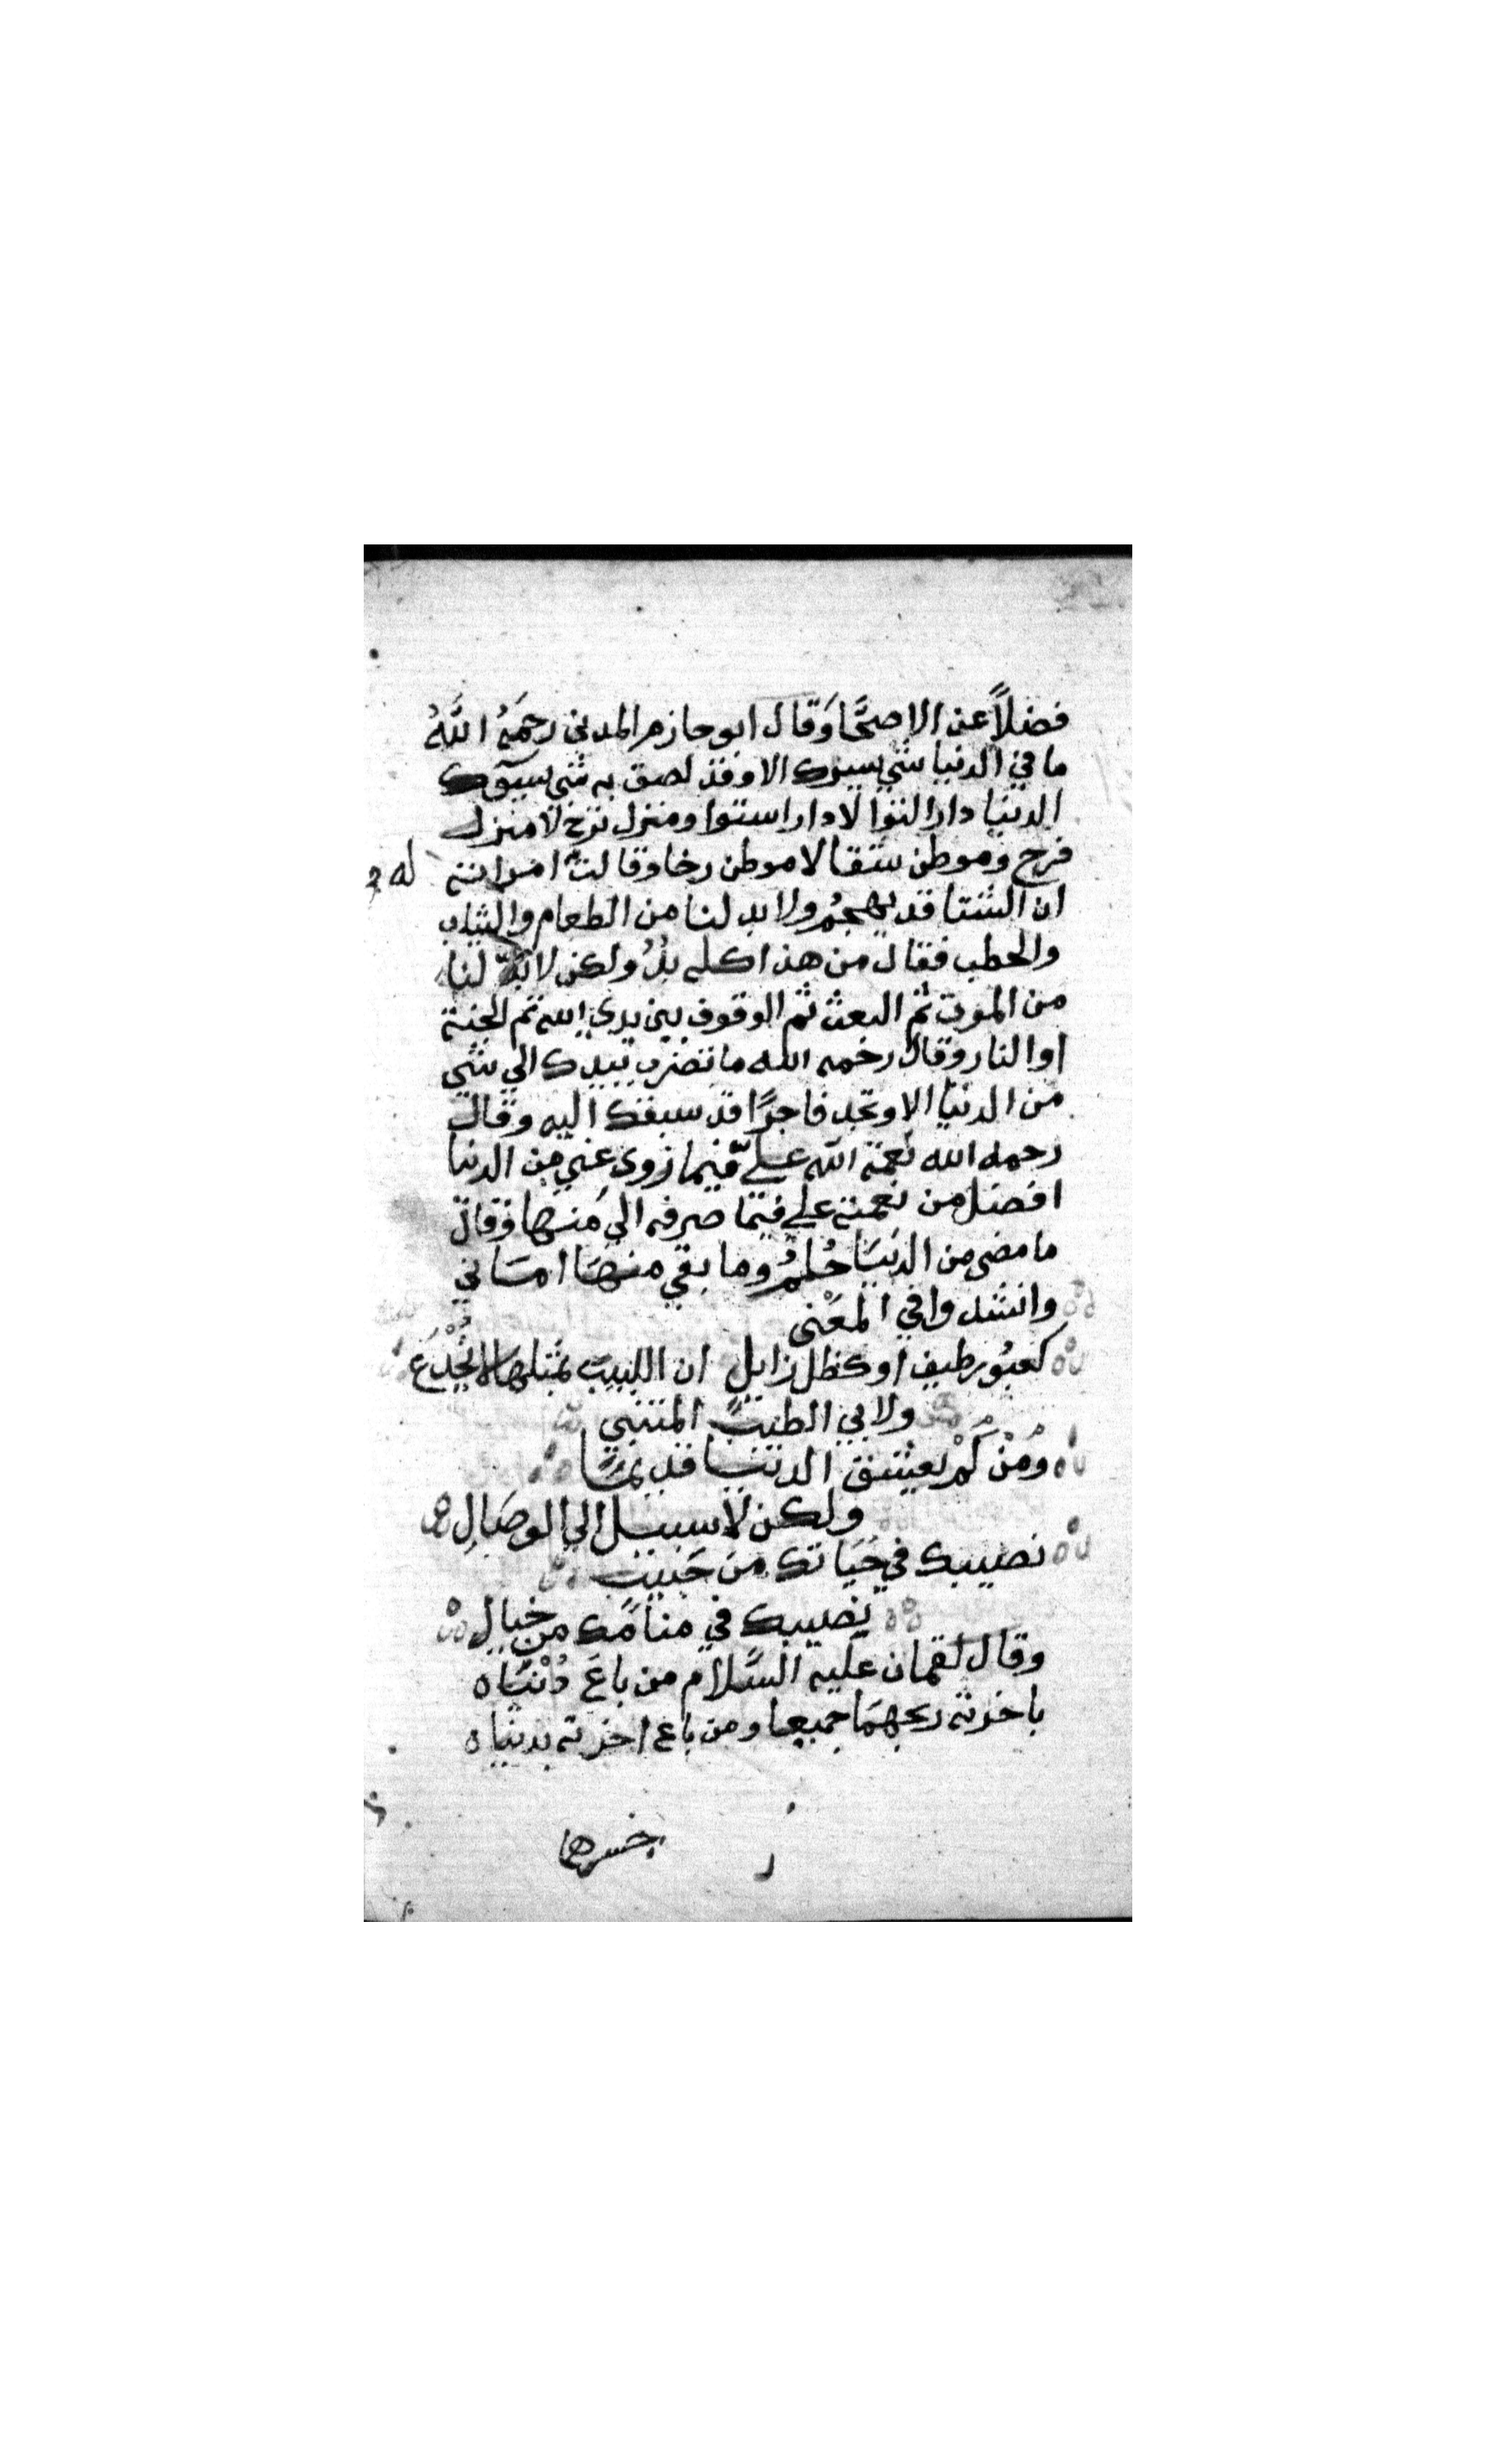 فضلاً عن الاصحَّا وَقال ابو حازم المدني رحمَهُ اللَّهُ
ما في الدنيا شي يسرك الا وقد لصق به شي يسوٓك
الدنيا دار التوا لا دار استوا ومنزل ترح لا منزل
فرح وموطن شقا لا موطن رخا وقالت امراته له
ان الشتا قد يهجمُ ولا بد لنا من الطعام والثياب
والحطب فقال من هذا كله بُدُّ ولكن لا بدّ لنا
من الموت ثم البعث ثم الوقوف بين يدي الله ثم الجنة
او النار وقال رحمه الله ما تضرب بيدك الي شي
من الدنيا الا وتجد فاجرًا قد سبقك اليه وقال
رحمه الله نعمة الله عليّ فيما زوى عني من الدنيا
افضل من نعمته علي فيما صرفه الي منها وقال
ما مضى من الدنيَا حُلمُ وما بقي منهَا امَاني
وانشدوا في المعْنى
كعبُور طيف او كظل زايل ان اللبيبَ بمثلها لا يُخْدَعُ
ولابي الطيب المتنبي
وَمَنْ لَمْ يعشق الدنيَا قديمًا
ولكن لا سبيل الي الوصَالِ
نصيبك في حَيَاتك من حَبيبٍ
نصيبك في منامك من خيالِ
وقال لقمان عليه السَّلام من باعَ دُنْيَاه
باخرته ربحهمَا جميعا ومن باع اخرته بدنياه
خسرهما